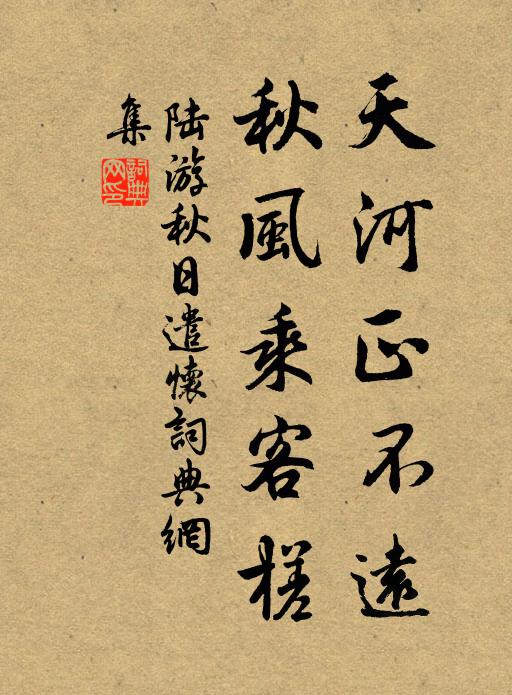 天河正不遠
秋風乘客槎
陆游秋日遣懷詞典網
集
詞典
网印